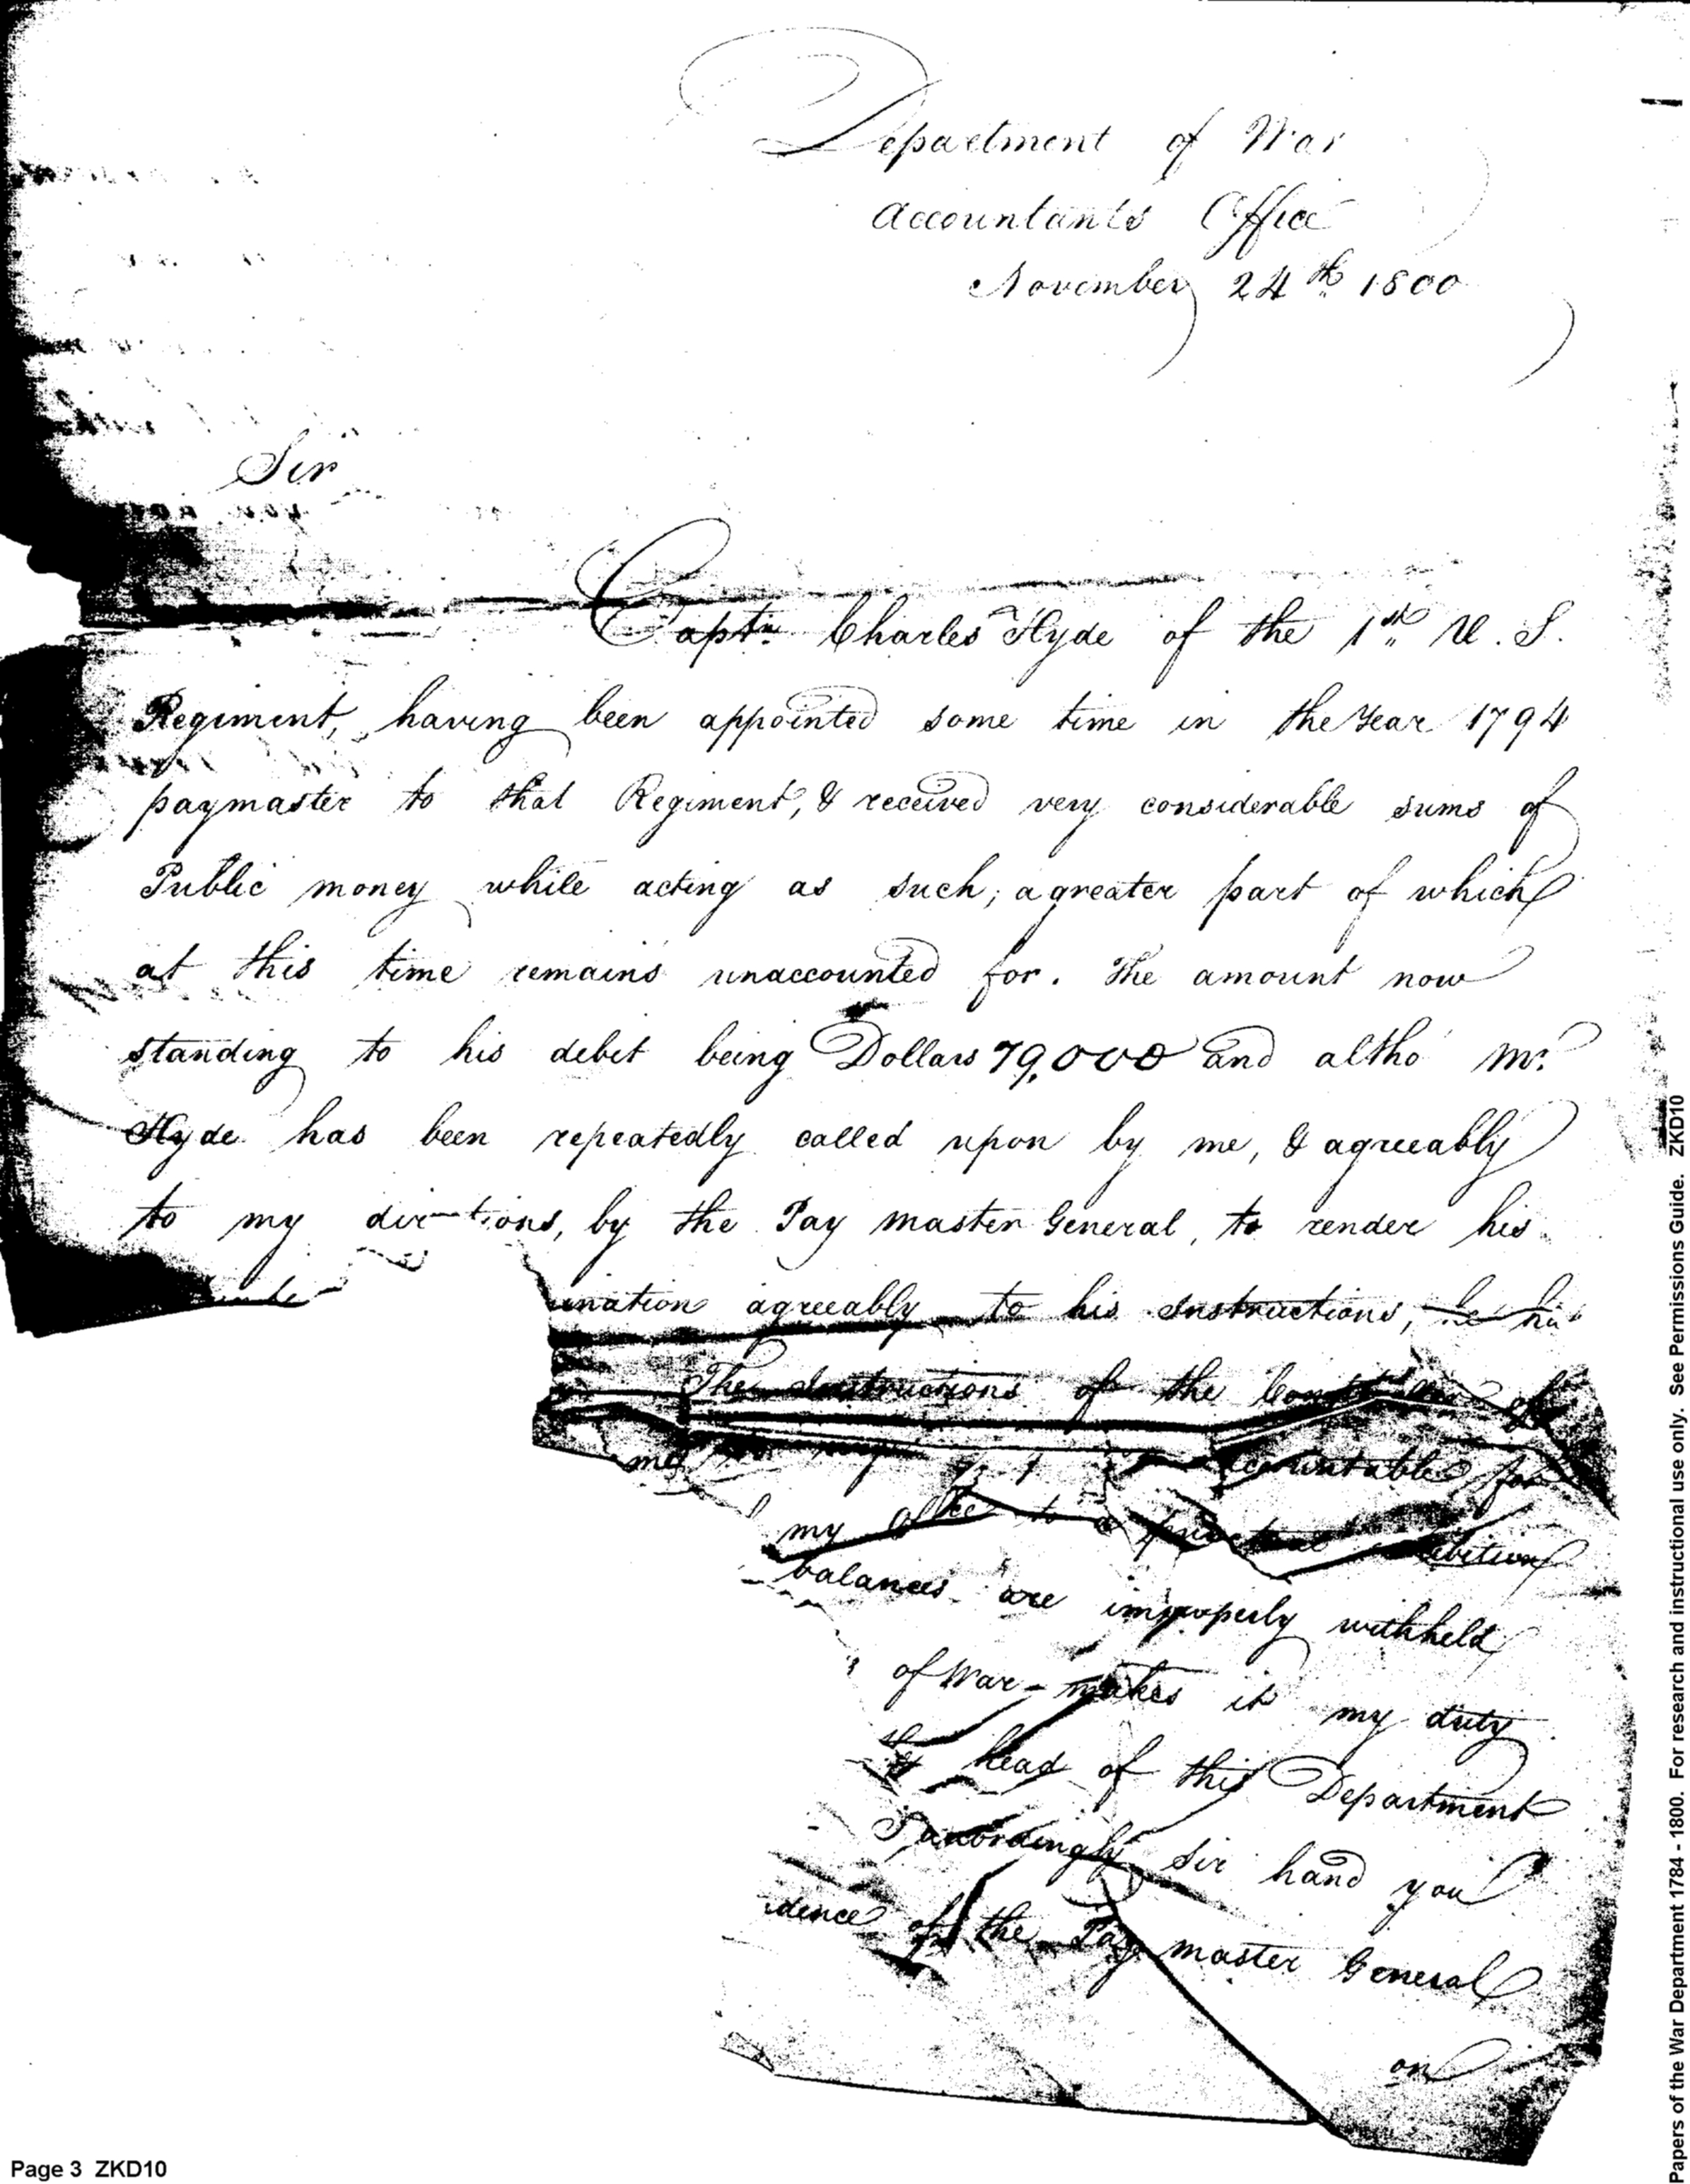 Department of War
Accountants Office
November 24th 1800
Sir
Captn Charles Hyde of the 1st U. S.
Regiment, having been appointed some time in the Year 1794
paymaster to that Regiment, & received very considerable sums of
Public money while acting as such; a greater part of which
at this time remains unaccounted for. The amount now
standing to his debit being Dollars 79,000 and altho' Mr.
Hyde has been repeatedly called upon by me, & agreeably
to my directions, by the Pay master General, to render his
ination agreeably to his Instructions, he has
The Instructions of the
accountable for
my office to a
balances are improperly withheld
of War - makes it my duty
head of this Department
I accordingly Sir hand you
idence of the Pay master General
on
Page 3 ZKD10
Papers of the War Department 1784 - 1800. For research and instructional use only. See Permissions Guide. ZKD10